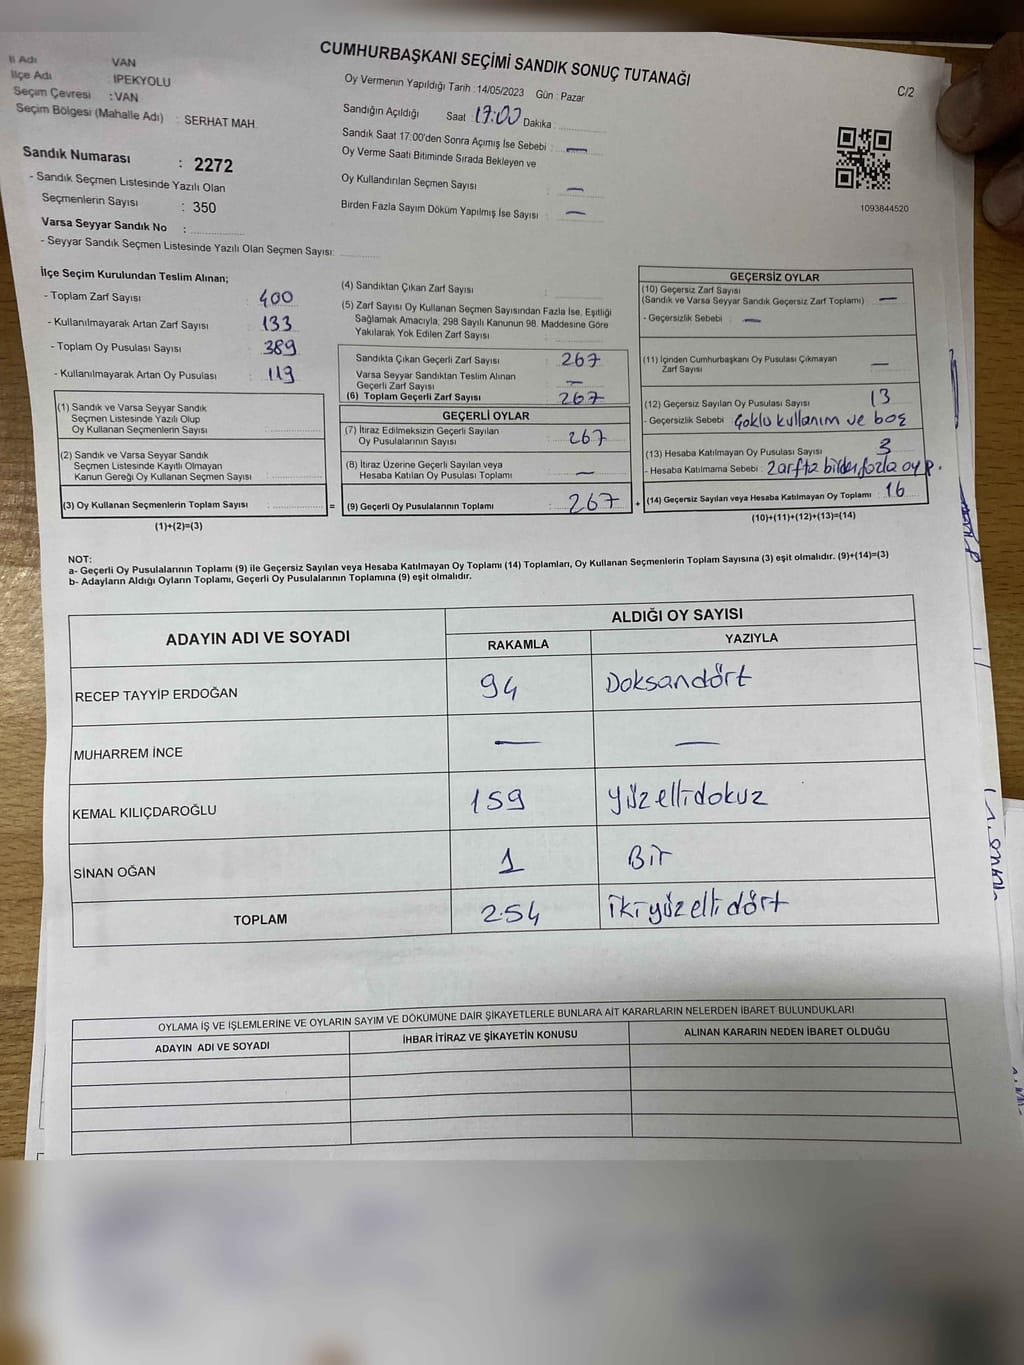 CUMHURBAŞKANI SEÇİMİ SANDIK SONUÇ TUTANAĞI
C/2
İl Adı VAN
İlçe Adı İPEKYOLU
Seçim Çevresi : VAN
Seçim Bölgesi (Mahalle Adı) : SERHAT MAH.
Sandık Numarası : 2272
- Sandık Seçmen Listesinde Yazılı Olan
Seçmenlerin Sayısı : 350
Varsa Seyyar Sandık No :
- Seyyar Sandık Seçmen Listesinde Yazılı Olan Seçmen Sayısı:
Oy Vermenin Yapıldığı Tarih : 14/05/2023 Gün : Pazar
Sandığın Açıldığı Saat : 17:00 Dakika :
Sandık Saat 17:00'den Sonra Açımış İse Sebebi : —
Oy Verme Saati Bitiminde Sırada Bekleyen ve
Oy Kullandırılan Seçmen Sayısı : —
Birden Fazla Sayım Döküm Yapılmış İse Sayısı : —
1093844520
İlçe Seçim Kurulundan Teslim Alınan;
- Toplam Zarf Sayısı : 400
- Kullanılmayarak Artan Zarf Sayısı : 133
- Toplam Oy Pusulası Sayısı : 389
- Kullanılmayarak Artan Oy Pusulası : 119
(1) Sandık ve Varsa Seyyar Sandık
Seçmen Listesinde Yazılı Olup
Oy Kullanan Seçmenlerin Sayısı :
(2) Sandık ve Varsa Seyyar Sandık
Seçmen Listesinde Kayıtlı Olmayan
Kanun Gereği Oy Kullanan Seçmen Sayısı :
(3) Oy Kullanan Seçmenlerin Toplam Sayısı : =
(1)+(2)=(3)
(4) Sandıktan Çıkan Zarf Sayısı :
(5) Zarf Sayısı Oy Kullanan Seçmen Sayısından Fazla İse, Eşitliği
Sağlamak Amacıyla, 298 Sayılı Kanunun 98. Maddesine Göre
Yakılarak Yok Edilen Zarf Sayısı :
Sandıkta Çıkan Geçerli Zarf Sayısı : 267
Varsa Seyyar Sandıktan Teslim Alınan
Geçerli Zarf Sayısı : —
(6) Toplam Geçerli Zarf Sayısı : 267
GEÇERLİ OYLAR
(7) İtiraz Edilmeksizin Geçerli Sayılan
Oy Pusulalarının Sayısı : 267
(8) İtiraz Üzerine Geçerli Sayılan veya
Hesaba Katılan Oy Pusulası Toplamı : —
(9) Geçerli Oy Pusulalarının Toplamı : 267 +
GEÇERSİZ OYLAR
(10) Geçersiz Zarf Sayısı
(Sandık ve Varsa Seyyar Sandık Geçersiz Zarf Toplamı) : —
- Geçersizlik Sebebi : —
(11) İçinden Cumhurbaşkanı Oy Pusulası Çıkmayan
Zarf Sayısı : —
(12) Geçersiz Sayılan Oy Pusulası Sayısı : 13
- Geçersizlik Sebebi : Çoklu kullanım ve boş
(13) Hesaba Katılmayan Oy Pusulası Sayısı : 3
- Hesaba Katılmama Sebebi : Zarfta birden fazla oy p.
(14) Geçersiz Sayılan veya Hesaba Katılmayan Oy Toplamı : 16
(10)+(11)+(12)+(13)=(14)
NOT:
a- Geçerli Oy Pusulalarının Toplamı (9) ile Geçersiz Sayılan veya Hesaba Katılmayan Oy Toplamı (14) Toplamları, Oy Kullanan Seçmenlerin Toplam Sayısına (3) eşit olmalıdır. (9)+(14)=(3)
b- Adayların Aldığı Oyların Toplamı, Geçerli Oy Pusulalarının Toplamına (9) eşit olmalıdır.
ADAYIN ADI VE SOYADI
ALDIĞI OY SAYISI
RAKAMLA YAZIYLA
RECEP TAYYİP ERDOĞAN 94 Doksandört
MUHARREM İNCE — —
KEMAL KILIÇDAROĞLU 159 yüzellidokuz
SİNAN OĞAN 1 Bir
TOPLAM 254 ikiyüzellidört
OYLAMA İŞ VE İŞLEMLERİNE VE OYLARIN SAYIM VE DÖKÜMÜNE DAİR ŞİKAYETLERLE BUNLARA AİT KARARLARIN NELERDEN İBARET BULUNDUKLARI
ADAYIN ADI VE SOYADI İHBAR İTİRAZ VE ŞİKAYETİN KONUSU ALINAN KARARIN NEDEN İBARET OLDUĞU